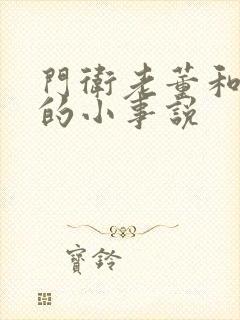 門衛老董和
的小事說
寶鈴